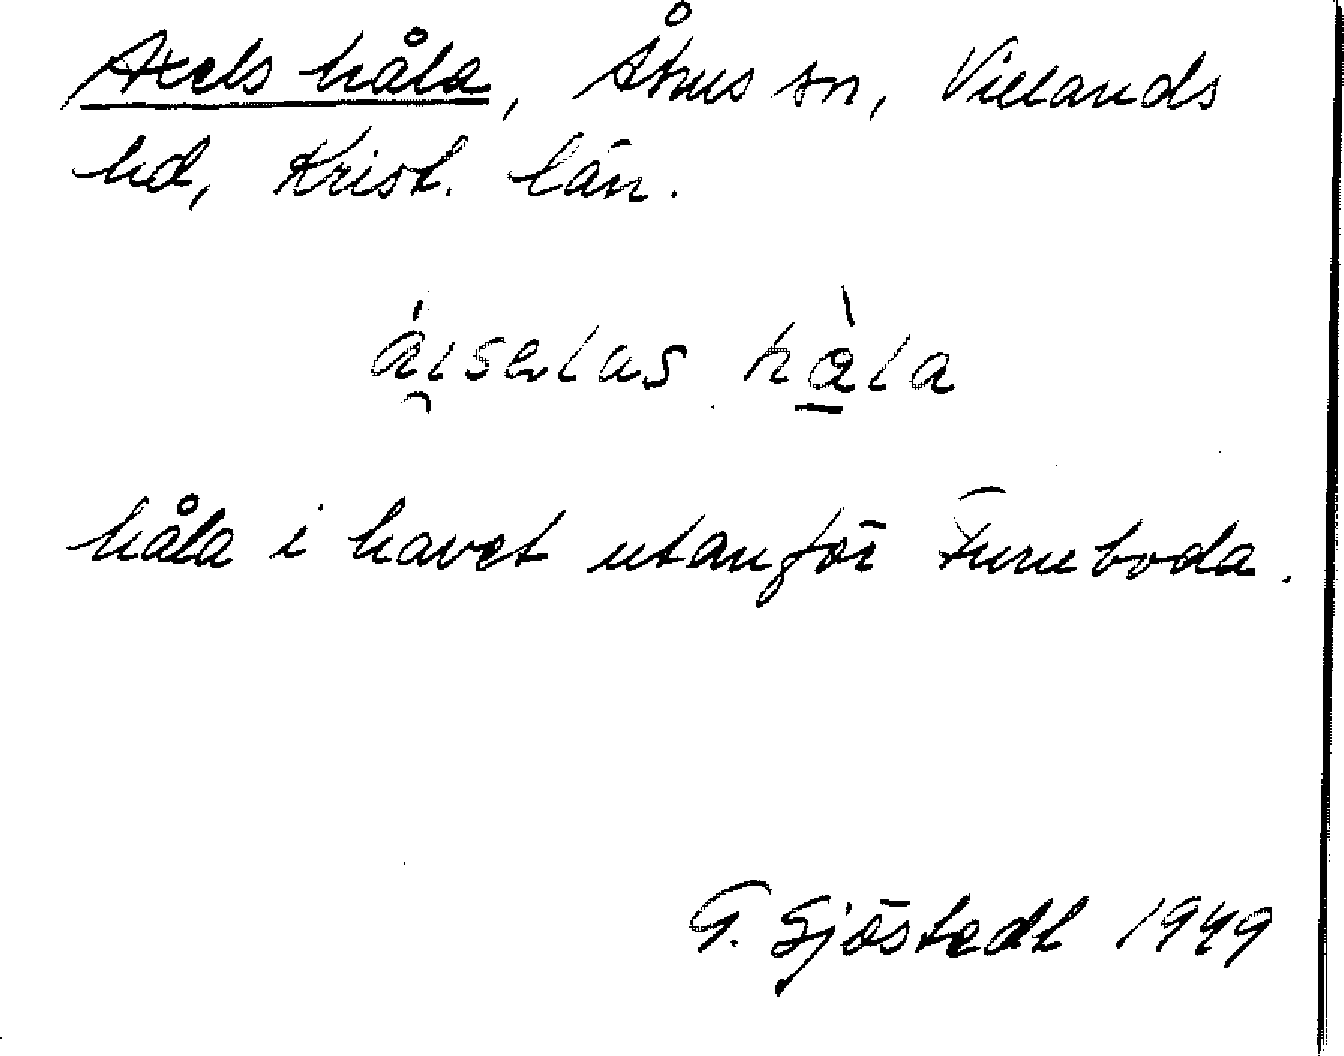 Axels håla, Åhus sn, Villands
hd, Krist. län.
håla i havet utanför Furuboda.
G. Sjöstedt 1949